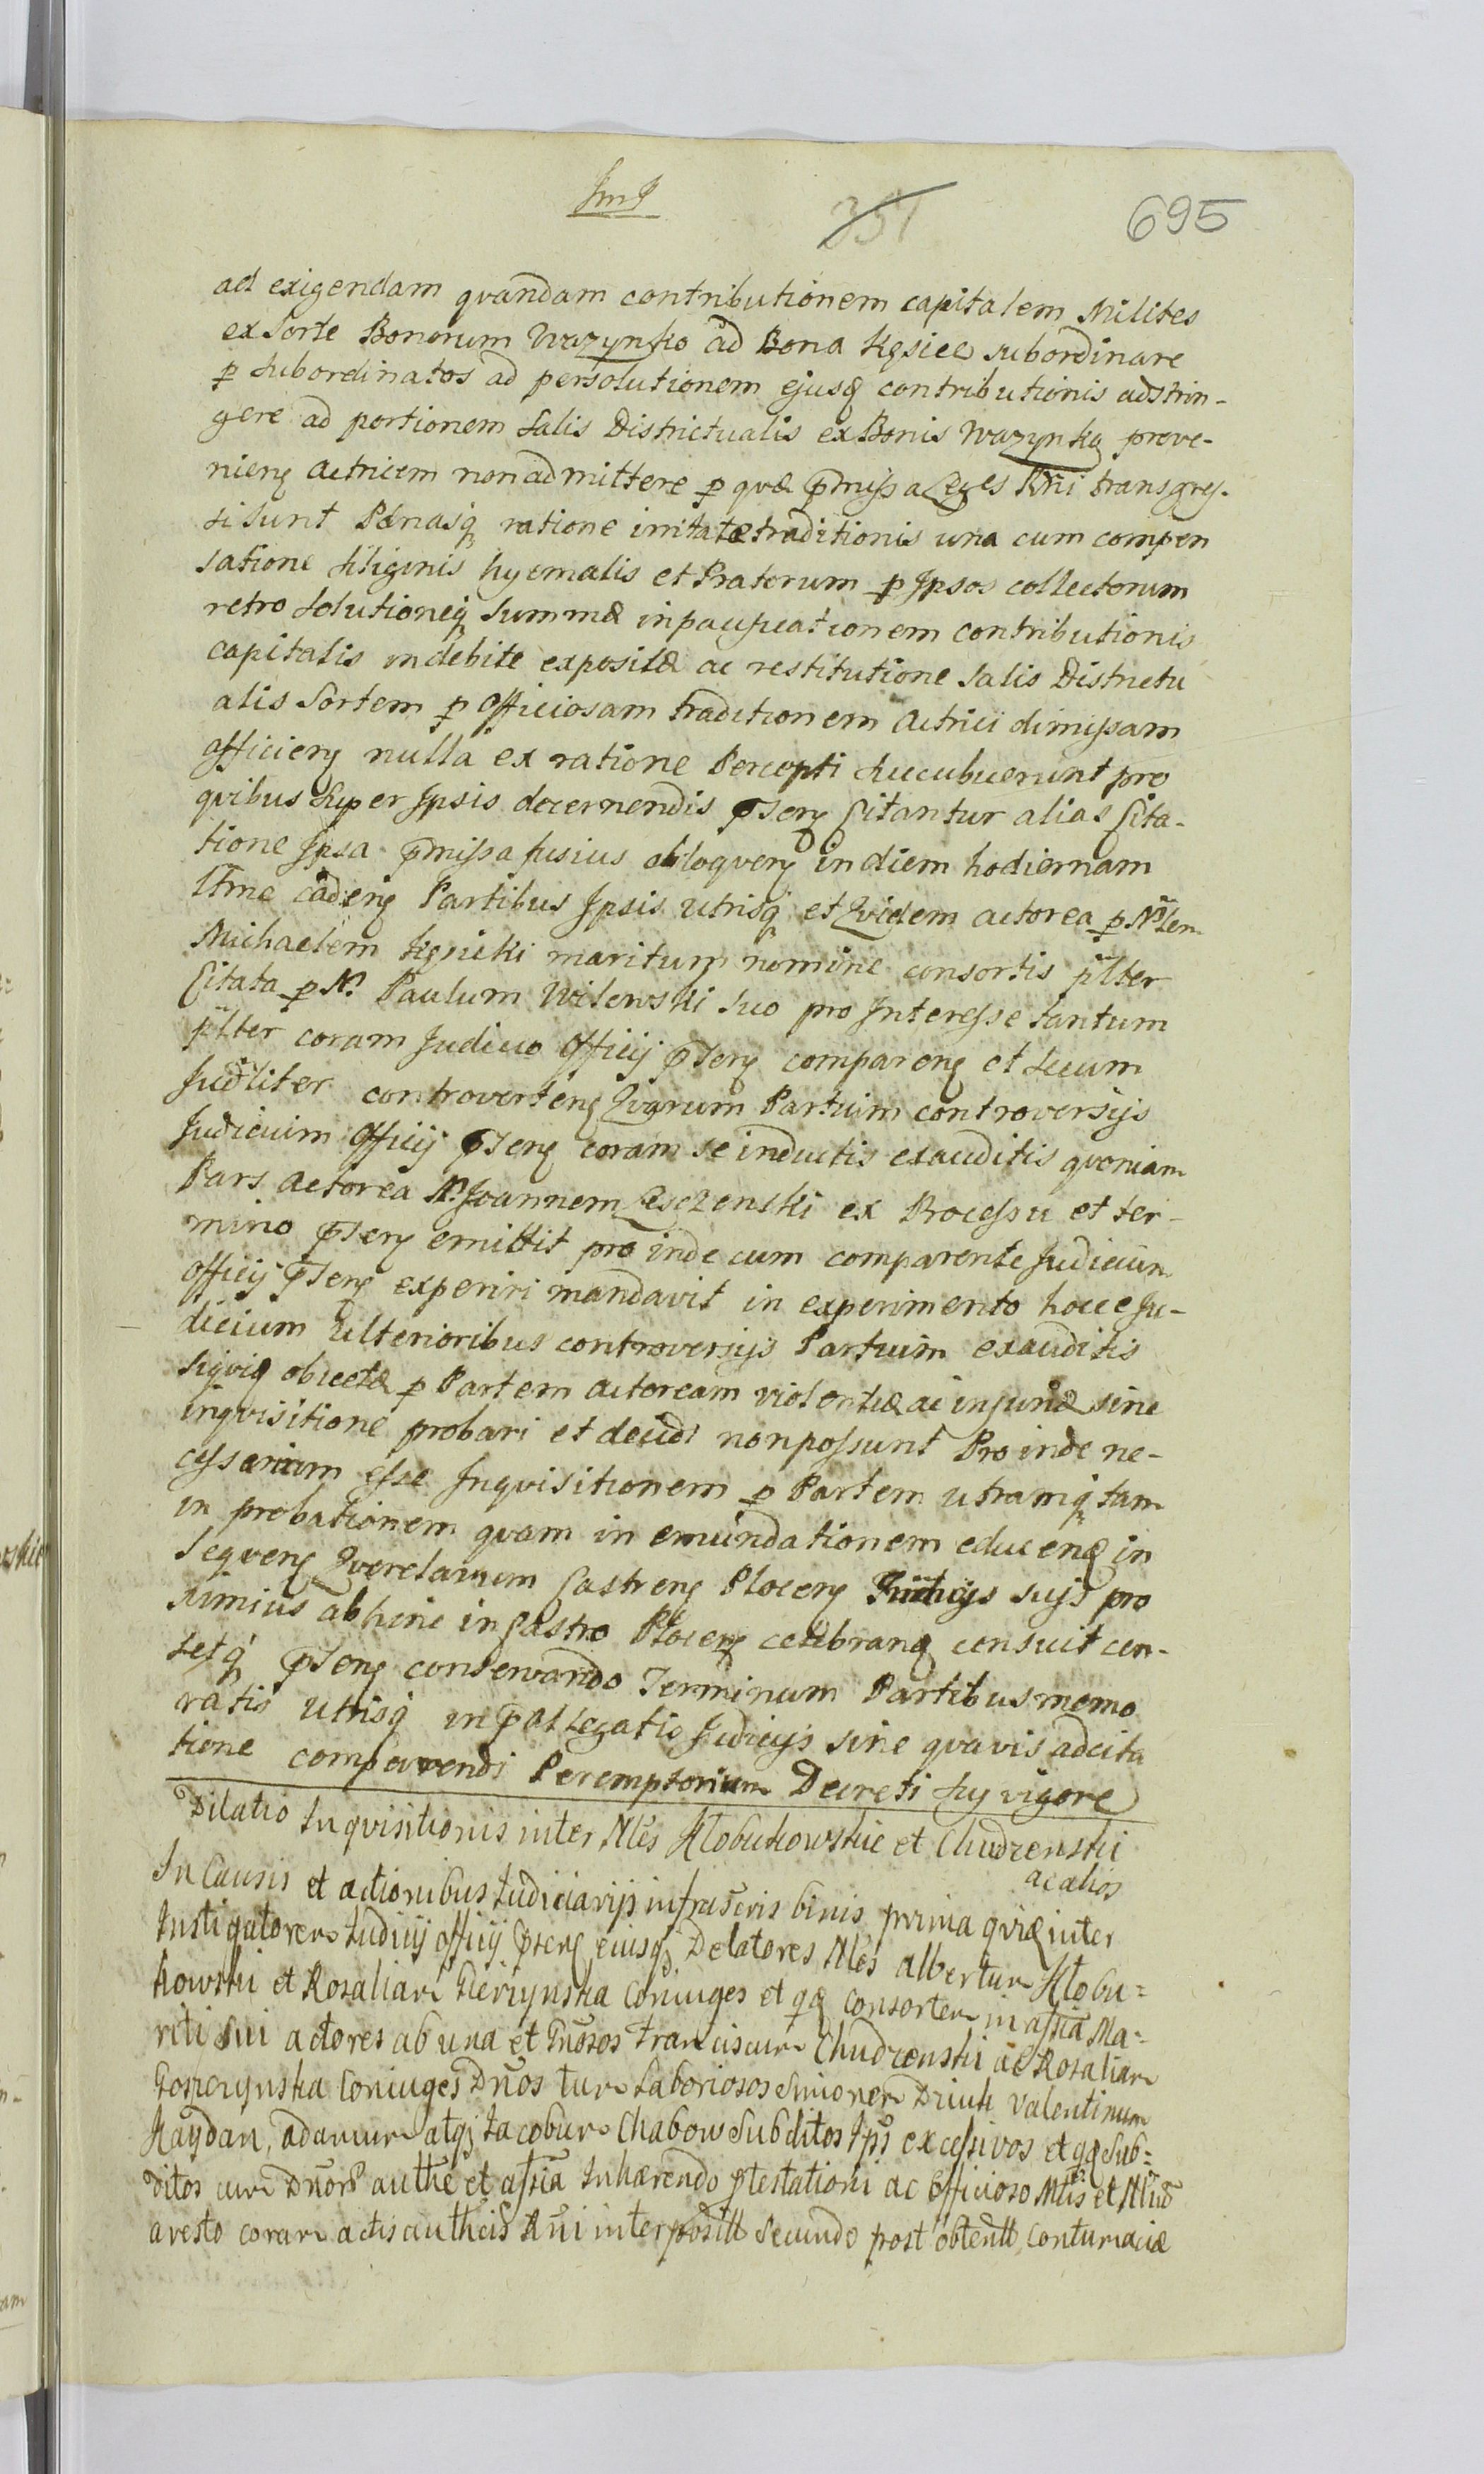 351 695
ad exigendam quandam contributionem capitalem Milites
ex Sorte Bonorum Wazynko ad Bona Kęsice subordinare
p subordinatos ad persolutionem ejusq contributionis adstrin-
gere ad portionem Salis Districtualis ex Bonis Wazynko prove-
nieng Actricem non admittere p quæ præmissa Leges Rñi transgres-
si sunt Pænasq ratione irritatæ traditionis una cum compen
satione Siliginis hyemalis et Pratorum p Ipsos collectorum
retro Solutioneq Summæ in pacificationem contributionis
capitalis indebite expositæ ac restitutione Salis Districtu
alis Sortem p Officiosam traditionem Actrici dimissam
officieng nulla ex ratione Percepti succubuerunt pro
quibus super Ipsis decernendis pñseng Citantur alias Cita-
tione Ipsa præmissa fusius obloqueng in diem hodiernam
lr̃me cadeng Partibus Ipsis utrisq et Quidem actorea p Nõlem
Michaelem Kęsicki maritum nomine consortis p̃lter
Citata p N. Paulum Wilewski suo pro Interesse tantum
p̃lter coram Judicio Officij pñseng compareng et secum
Jud̃liter controverteng Quarum Partium controversijs
Judicium Officij pñseng coram se inductis exauditis quoniam
Pars actorea N. Joannem Leszczenski ex Processu et ter-
mino pñseng emittit pro inde cum comparente Judicium
Officij pñseng experiri mandavit in experimento hocce Ju-
dicium Ulterioribus controversijs Partium exauditis
siqviq obiectæ p Partem actoream violentiæ ac injuriæ sine
inqvisitione probari et decidi non possunt Pro inde ne-
cessarium esse Inqvisitionem p Partem utramq tam
in probationem quam in emundationem educenq in
Seqveng Querelarum Castreng Ploceng Judicijs sujs pro
ximius abhinc in Castro Ploceng celebranq censuit cen-
setq pñseng conservando Terminum Partibus memo
ratis utrisq in præallegatis Judicijs sine quavis adcita
tione comparendi Peremptorium Decreti huj vigore
Dilatio Inqvisitionis inter Nles Kłobukowskie et Chudzenski
ac alios
In Causis et actionibus Judiciarijs infrascris binis prima quæ inter
Instigatorem Judicij Officij pñseng ejusq Delatores Nles Albertum Kłobu=
kowski et Rosaliam Gierzynska Coniuges et qq Consortem in assĩa Ma=
riti sui actores ab una et Gñosos Franciscum Chudzenski ac Rosaliam
Goszczynska Coniuges Dños tum Laboriosos Simonem Dziuk Valentinum
Kaydan, adamum atq Jacobum Chabow Subditos Ips excessivos et qq Sub=
ditos cum Dñorũ authẽ et assĩa Inhærendo ptestationi ac Officioso Mlis et Nliũ
aresto coram actis authcis Rñi interposit Secundo post obtent Contumaciæ